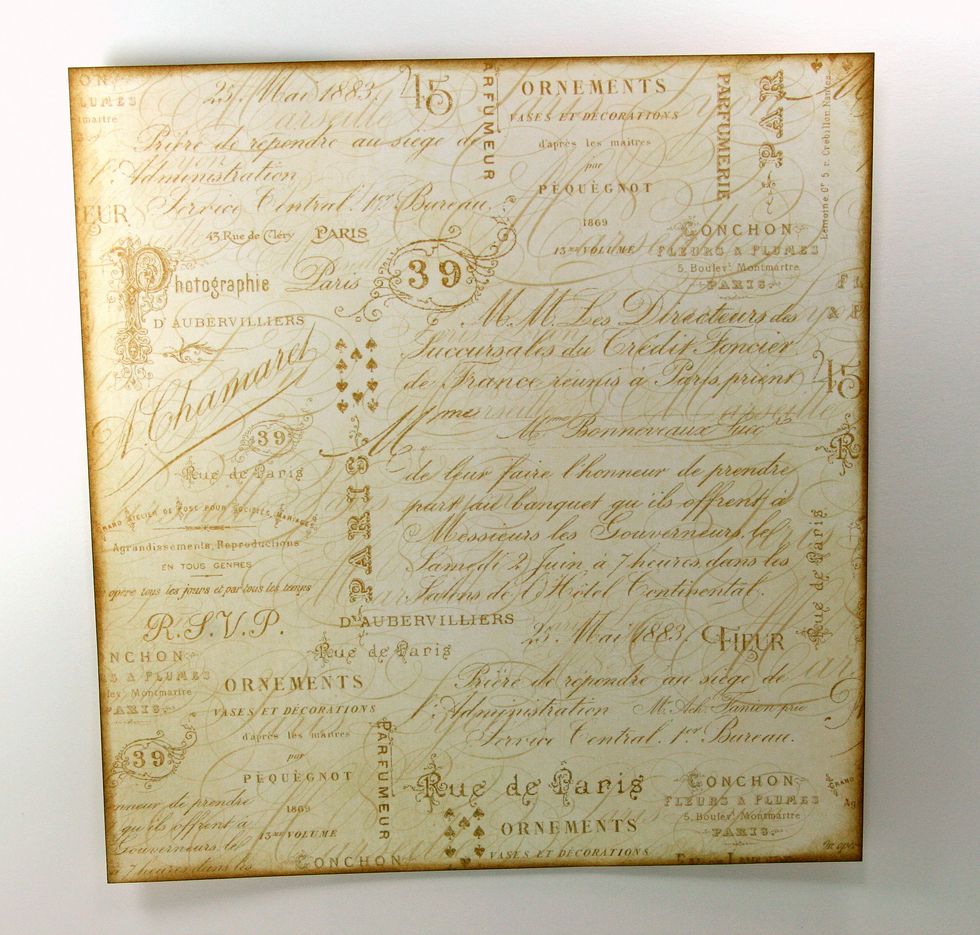 25, Mai 1883.
Prière de répondre au siège de
l'Administration
Service Central. 1er Bureau.
43 Rue de Cléry PARIS
45
PARFUMEUR
ORNEMENTS
VASES ET DÉCORATIONS
d'après les maîtres
par
PÈQUÈGNOT
1869
13me VOLUME
PARFUMERIE
PAR
Lemoine
5, r. Crébillon, Nantes
GONCHON
FLEURS & PLUMES
5, Boulevt. Montmartre
PARIS
Photographie Paris
D'AUBERVILLIERS
39
A. Chamaret
39
Rue de Paris
GRAND ATELIER DE POSE POUR SOCIÉTÉS, MARIAGES
Agrandissements, Reproductions
EN TOUS GENRES
opère tous les jours et par tous les temps
R.S.V.P.
M.M. Les Directeurs des
Succursales du Crédit Foncier
de France réunis à Paris, prient
Mme
Mme Bonneveaux
de leur faire l'honneur de prendre
part au banquet qu'ils offrent à
Messieurs les Gouverneurs, le
Samedi 2 Juin, à 7 heures, dans les
Salons de l'Hôtel Continental.
PARIS
45
R
Rue de Paris
D'AUBERVILLIERS
Rue de Paris
25, Mai 1883.
FLEUR
Prière de répondre au siège de
l'Administration
Service Central. 1er Bureau.
NCHON
S & PLUMES
Montmartre
PARIS
ORNEMENTS
VASES ET DÉCORATIONS
d'après les maîtres
par
PÈQUÈGNOT
1869
13me VOLUME
PARFUMEUR
39
nneur de prendre
qu'ils offrent à
Gouverneurs, le
heures, dans les
Rue de Paris
ORNEMENTS
VASES ET DÉCORATIONS
GONCHON
GONCHON
FLEURS & PLUMES
5, Boulevt. Montmartre
PARIS